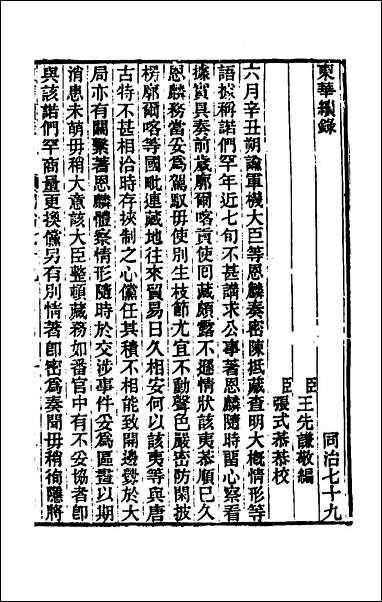 東華續錄 同治七十九
臣王先謙敬編
臣張式恭恭校
六月辛丑朔諭軍機大臣等恩麟奏密陳抵藏查明大概情形等
語據稱諾們罕年近七旬不甚講求公事著恩麟隨時留心察看
據實具奏前歲廓爾喀貢使囘藏頗露不遜情狀該夷恭順已久
恩麟務當妥爲駕馭毋使別生枝節尤宜不動聲色嚴密防閑披
楞廓爾喀等國毗連藏地往來貿易日久相安何以該夷等與唐
古特不甚相洽時存挾制之心儻任其積不相能致開邊釁於大
局亦有關繫著恩麟體察情形隨時於交涉事件妥爲區畫以期
消患未萌毋稍大意該大臣整頓藏務如番官中有不妥協者卽
與該諾們罕商量更換儻另有別情著卽密爲奏聞毋稍徇隱將